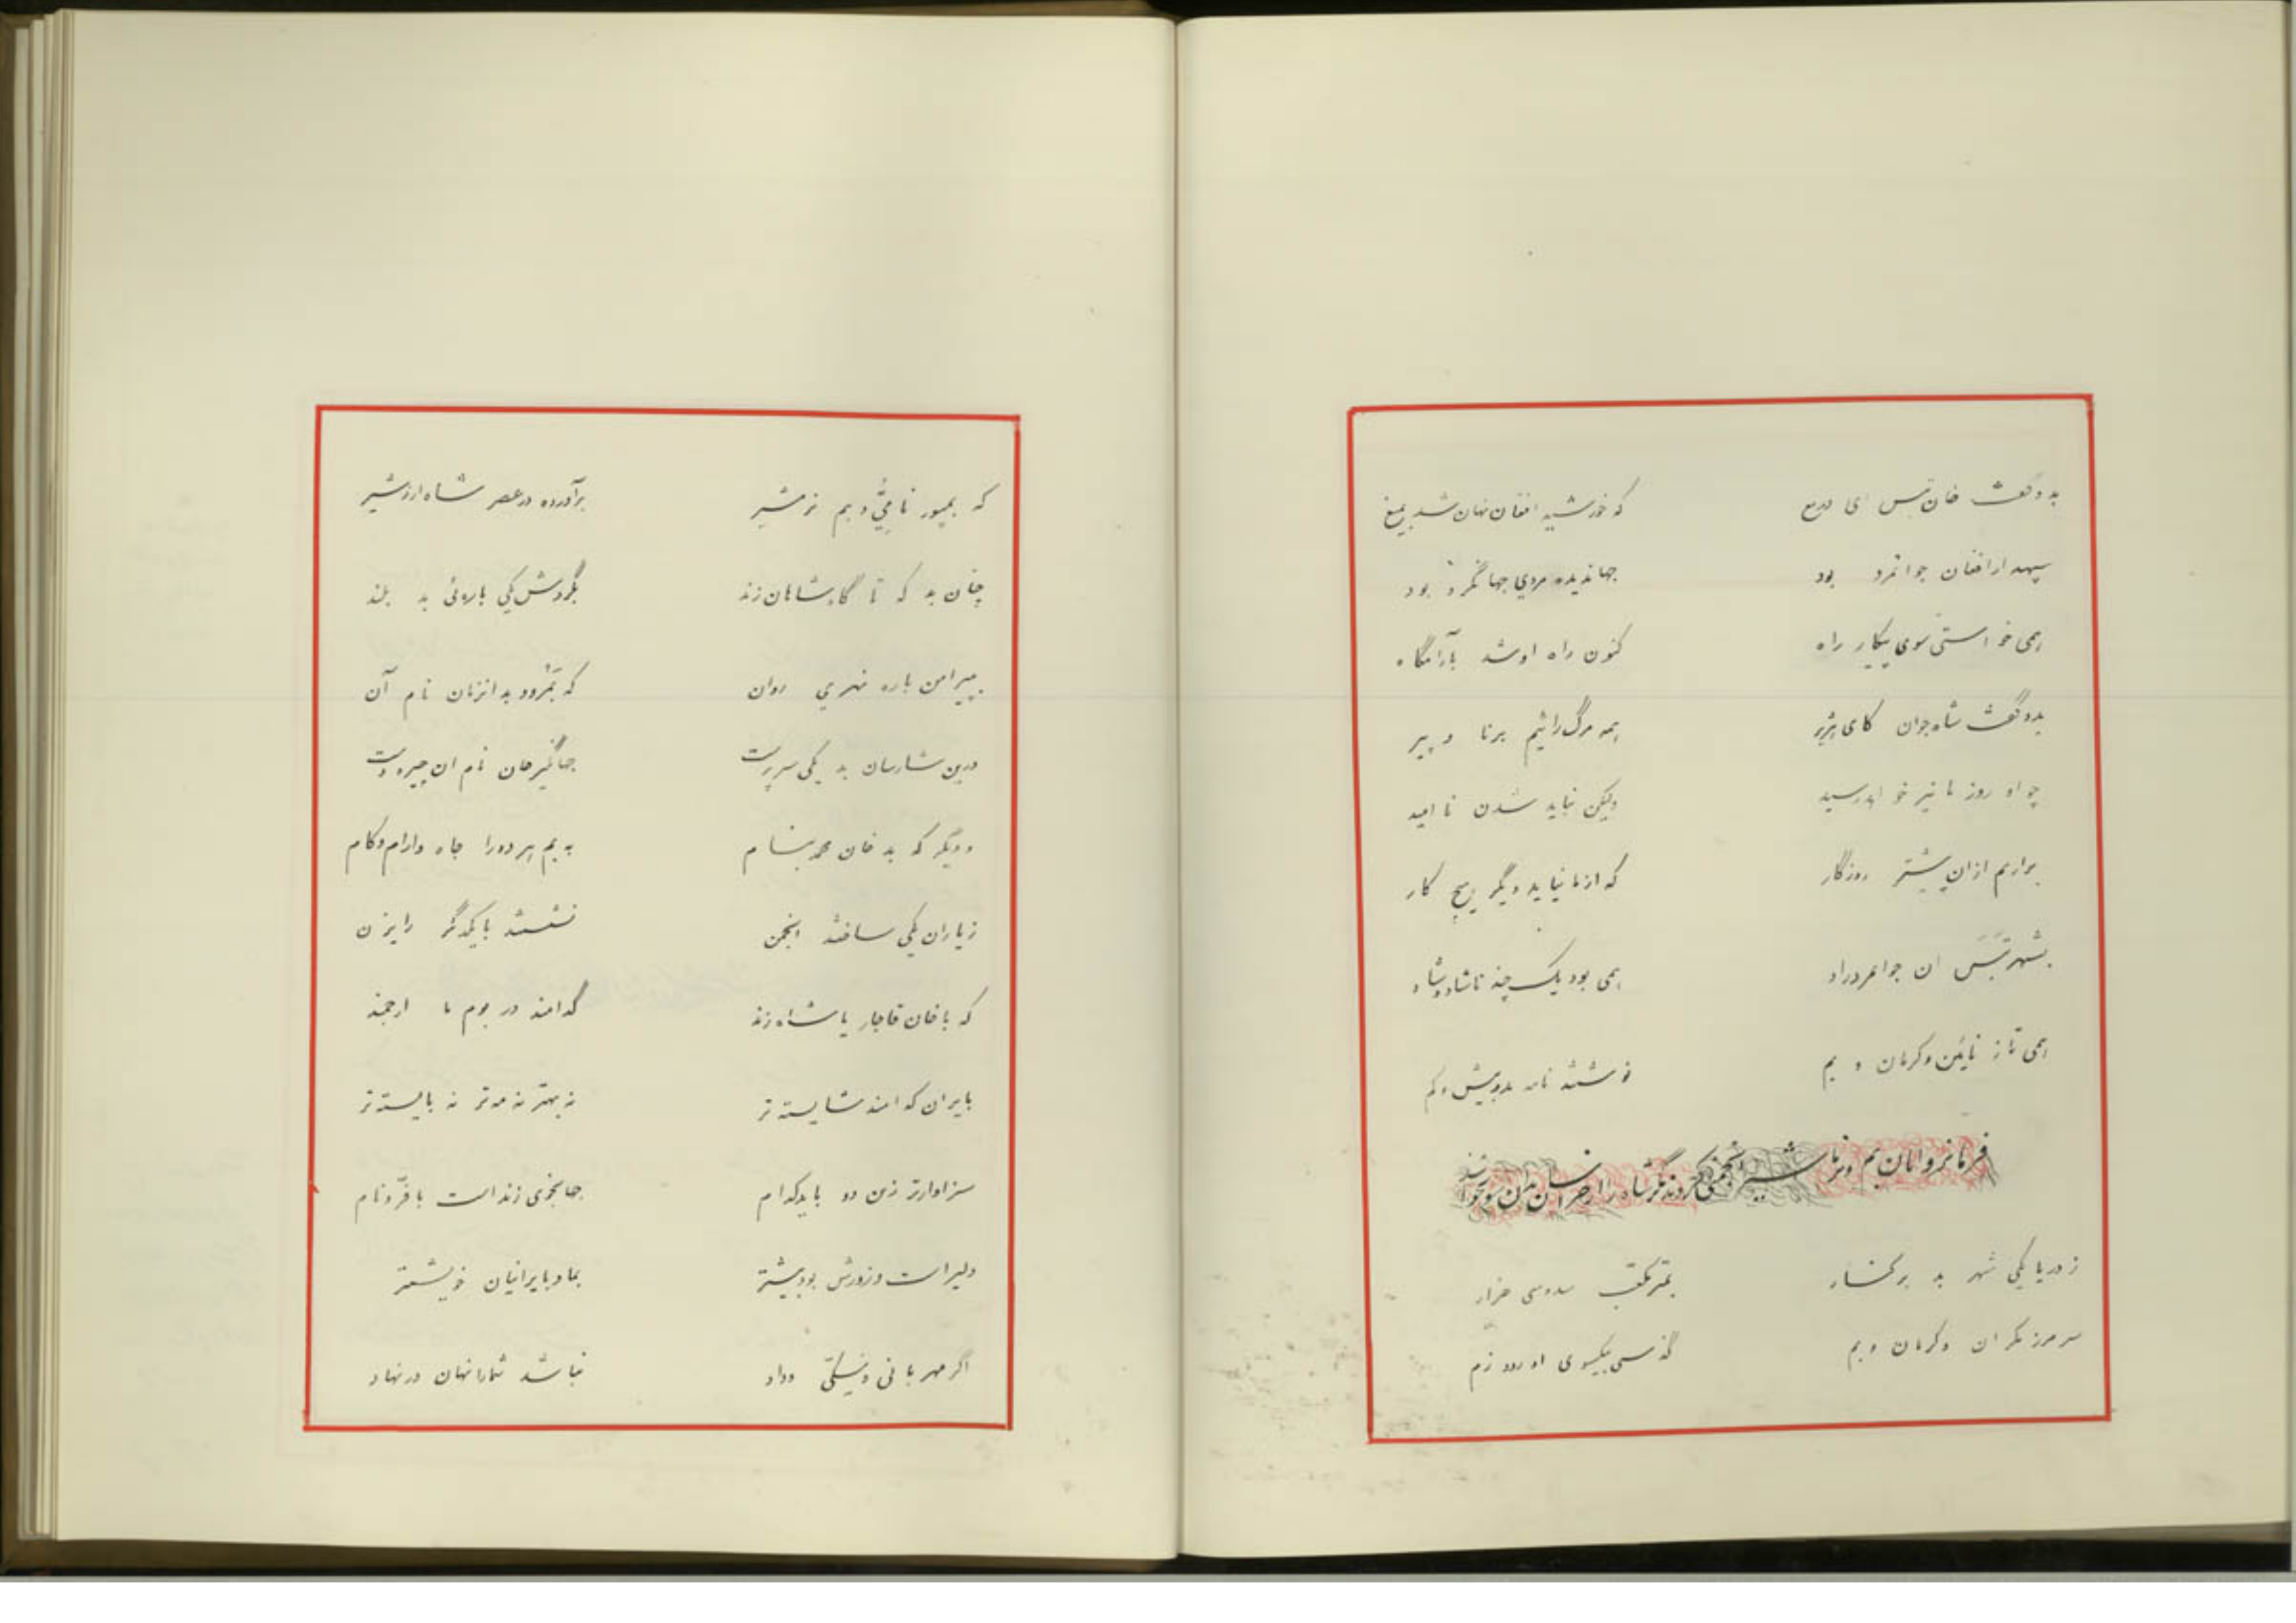 بدو گفت خان تبس ای دریغ که خورشید افغان نهان شد بمیغ
سپهدار افغان جوانمرد بود جهاندیده مردی جهانگرد بود
همی خواستی سوی پیکار راه کنون راه او شد بآرامگاه
بدو گفت شاه جوان کای هژبر همه مرگ رائیم برنا و پیر
چو او روز ما نیز خواهد رسید ولیکن نباید شدن نا امید
براریم ازان پیشتر روزگار که از ما نیاید دیگر هیچ کار
بشهر تبس ان جوانمرد راد همی بود یک چند ناشاد و شاد
همی تا ز نائین و کرمان و بم نوشتند نامه بدو بیش و کم
فرمانروایان بم و نرماشیر انجمنی کردند مگر شاه را از خراسان بدان سو خوانند
ز دریا یکی شهر بد برکنار بمتر مکعب سه و سی هزار
سر مرز مکران و کرمان و بم گذسی بیکسوی او رود زم
که بمپور نامیّ و بم نرمشیر برآورده در عصر شاه اردشیر
چنان بد که تا گاه شاهان زند بگردش یکی باروئی بد بلند
بپیرامن باره نهری روان که تمرود بد انزمان نام آن
درین شارسان بد یکی سرپرست جهانگیرخان نام ان چیره دست
و دیگر که بد خان محمد بنام به بم هر دو را جاه و ارام و کام
ز یاران یکی ساختند انجمن نشستند با یکدگر رایزن
که با خان قاجار یا شاه زند کدامند در بوم ما ارجمند
بایران کدامند شایسته تر نه بهتر نه مه تر نه بایسته تر
سزاوارتر زین دو باید کدام جهانجوی زند است با فرّ و نام
دلیر است و زورش بود بیشتر بما و بایرانیان خویشتر
اگر مهربانی و نیکیّ و داد نباشد شما را نهان در نهاد